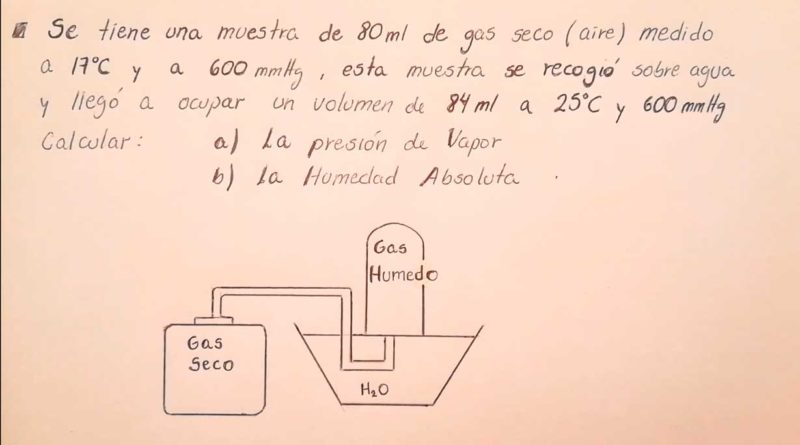 Se tiene una muestra de 80ml de gas seco (aire) medido
a 17°C y a 600 mmHg, esta muestra se recogió sobre agua
y llegó a ocupar un volumen de 84 ml a 25°C y 600 mmHg
Calcular: a) La presión de Vapor
b) La Humedad Absoluta.
Gas
Humedo
Gas
Seco
H₂O